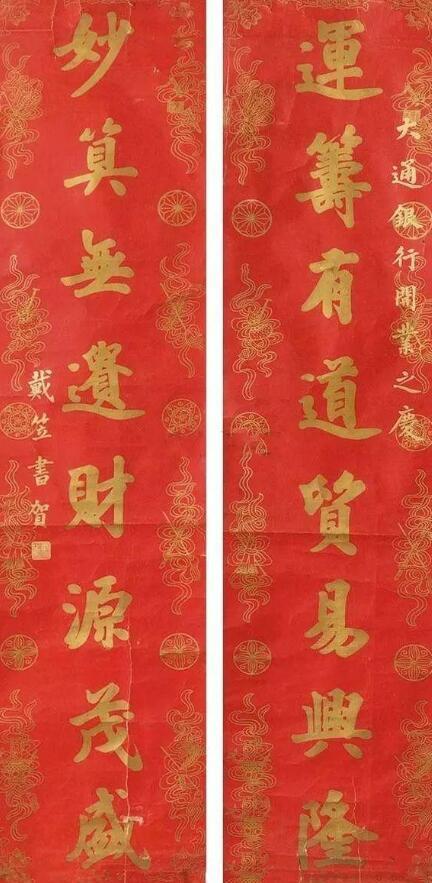 大通銀行開業之慶
運籌有道貿易興隆
妙算無遺財源茂盛
戴笠書賀